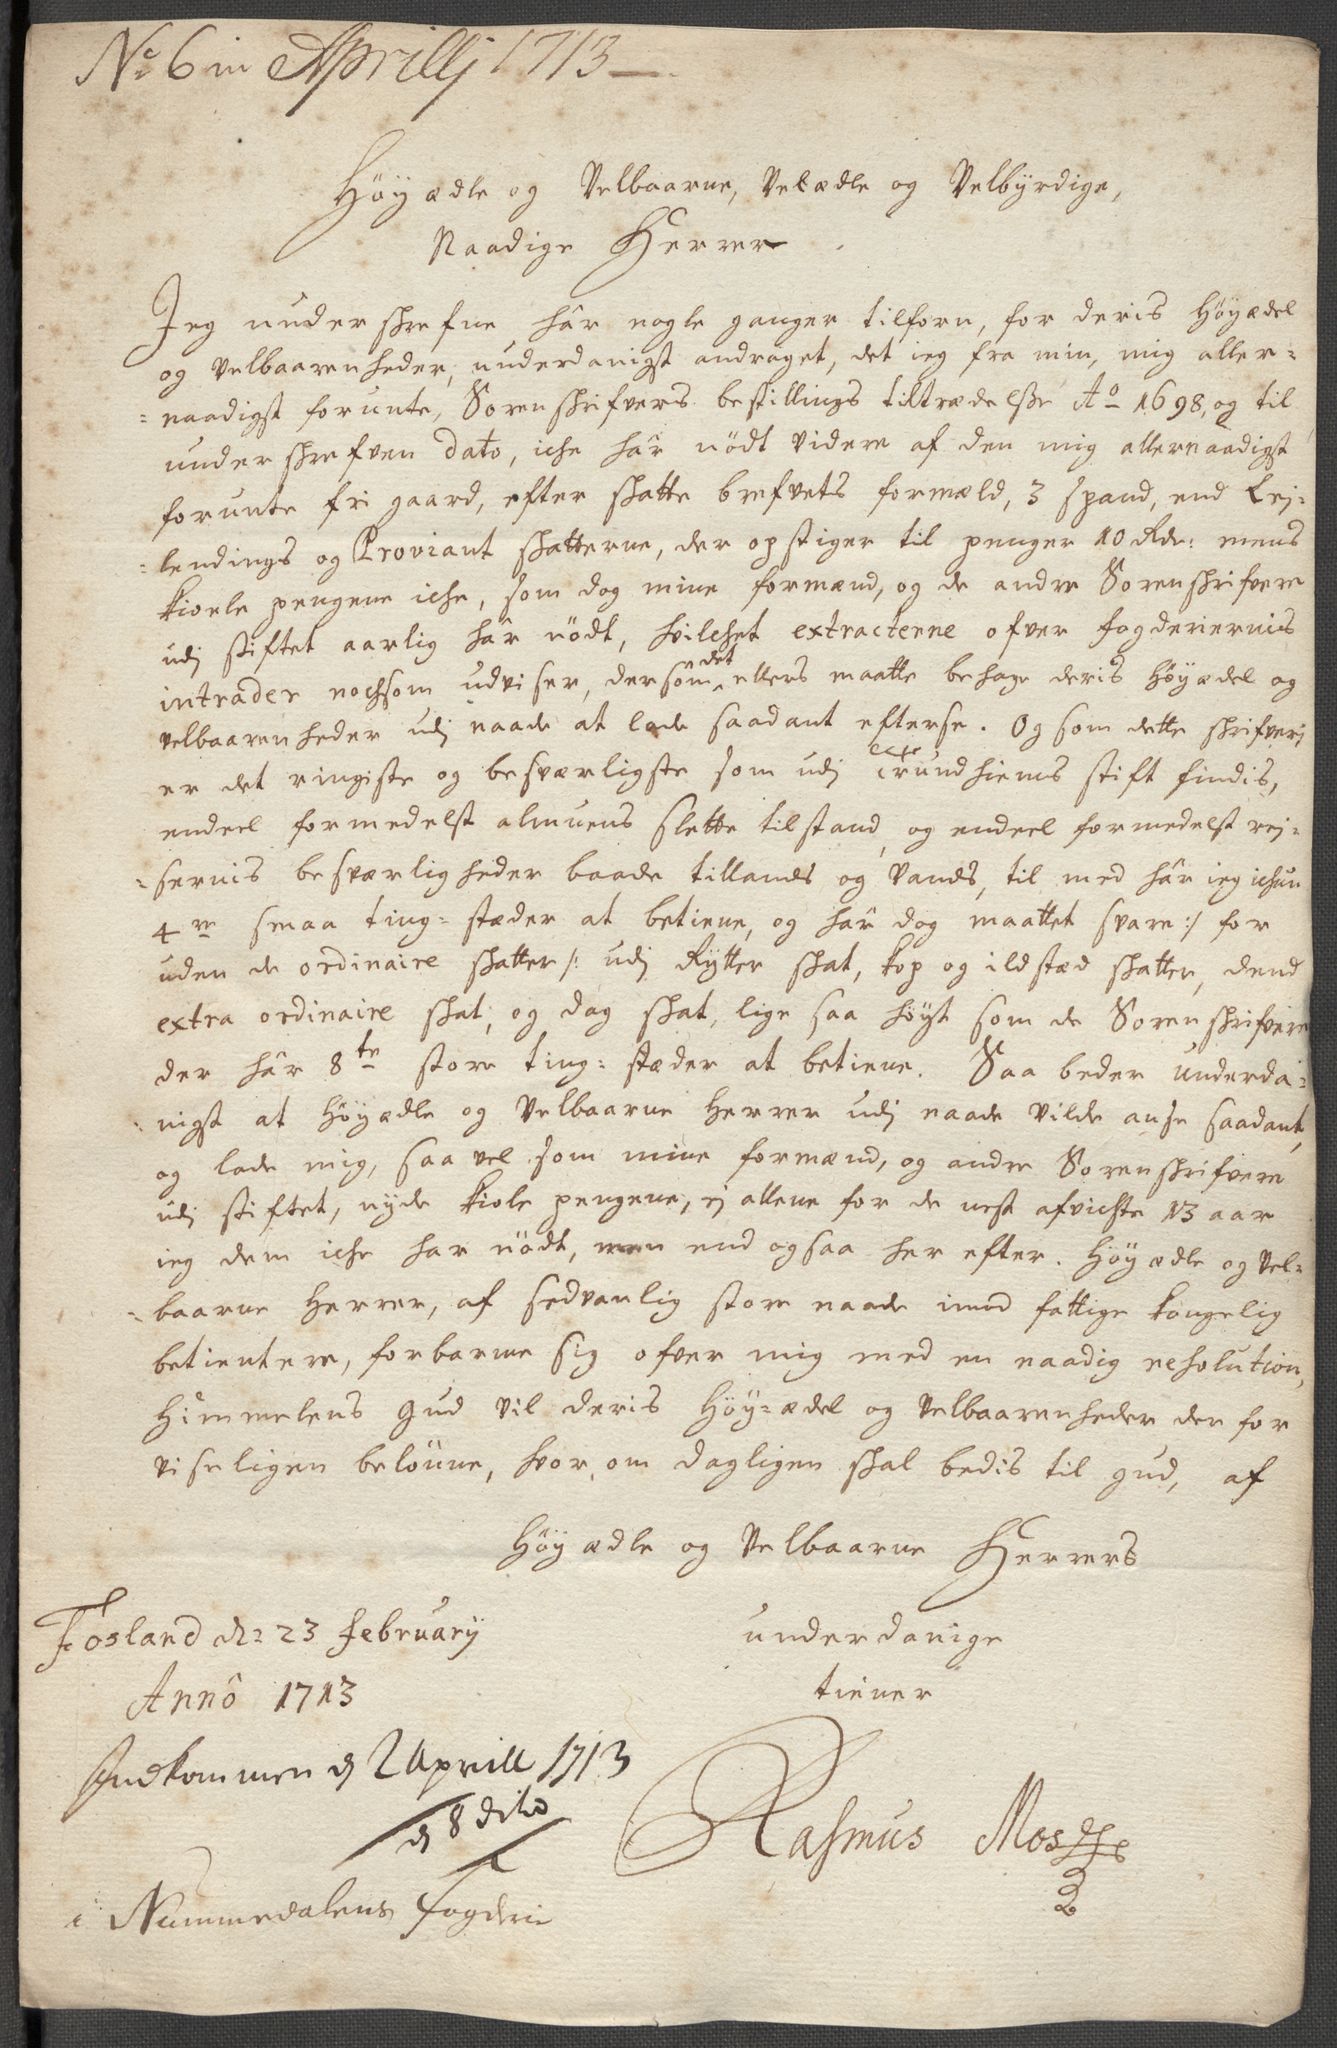 No 6 in Aprilij 1713
Höÿædle og Velbaarne, Velædle og Velbÿrdige,
Naadige Herrer
Jeg underskrefne här nogle ganger tilforn, for deris Höÿædel
og velbaarenheder, underdanigst andraget, det ieg fra min, mig aller=
=naadigst forunte, Sorenskrifvers bestillings tiltrædelsse Ao 1698, og til
underskrefven dato, iche här nödt videre af den mig allernaadigst
forunte fri gaard, efter skatte brefvets formæld, 3 spand, end Lej=
=lendings og Proviant skatterne, der opstiger til penger 10 Rdr: mens
kiole pengene iche, som dog mine formænd, og de andre Sorenskrifvere
udj stiftet aarlig här nödt, hvilchet extracterne ofver fogderiernis
intrader nochsom udviser, dersom det ellers maatte behage deris Höÿædel og
velbaarenheder udj naade at lade saadant efterse. Og som dette skrifverj
er det ringiste og besværligste som udj trundhiems stift findis,
endeel formedelst almuens slette tilstand, og endeel formedelst rej=
=sernis besværligheder baade tillands og vands, til med här ieg ichun
4re smaa ting=stæder at betiene, og här dog maattet svare :/ for
uden de ordinaire skatter /: udj Rÿtter skat, kop og ildstæd skatter, dend
extra ordinaire skat, og dag skat, lige saa höÿt som de Sorenskrifvere
der här 8te store ting=stæder at betiene. Saa beder underda=
=nigst at Höÿædle og Velbaarne Herrer udj naade vilde anse saadant,
og lade mig, saa vel som mine formænd, og andre Sorenskrifvere
udj stiftet, nyde kiole pengene, ej allene for de nest afvichte 13 aar
ieg dem iche har nödt, men end ogsaa her efter. Höÿædle og Vel=
=baarne Herrer, af sedvanlig store naade imod fattige kongelig
betientere, forbarme sig ofver mig med en naadig resolution,
Himmelens Gud vil deris Höÿ=ædel og Velbaarenheder der for
viseligen belönne, hvor om dagligen skal bedis til gud, af
Höÿædle og Velbaarne Herrers
Fosland dn: 23 Februarÿ
underdanige
Annô 1713
tiener
Indkommen d 2 Aprill 1713
d 8 dito
Rasmus Mos
i Nummedalens fogderie